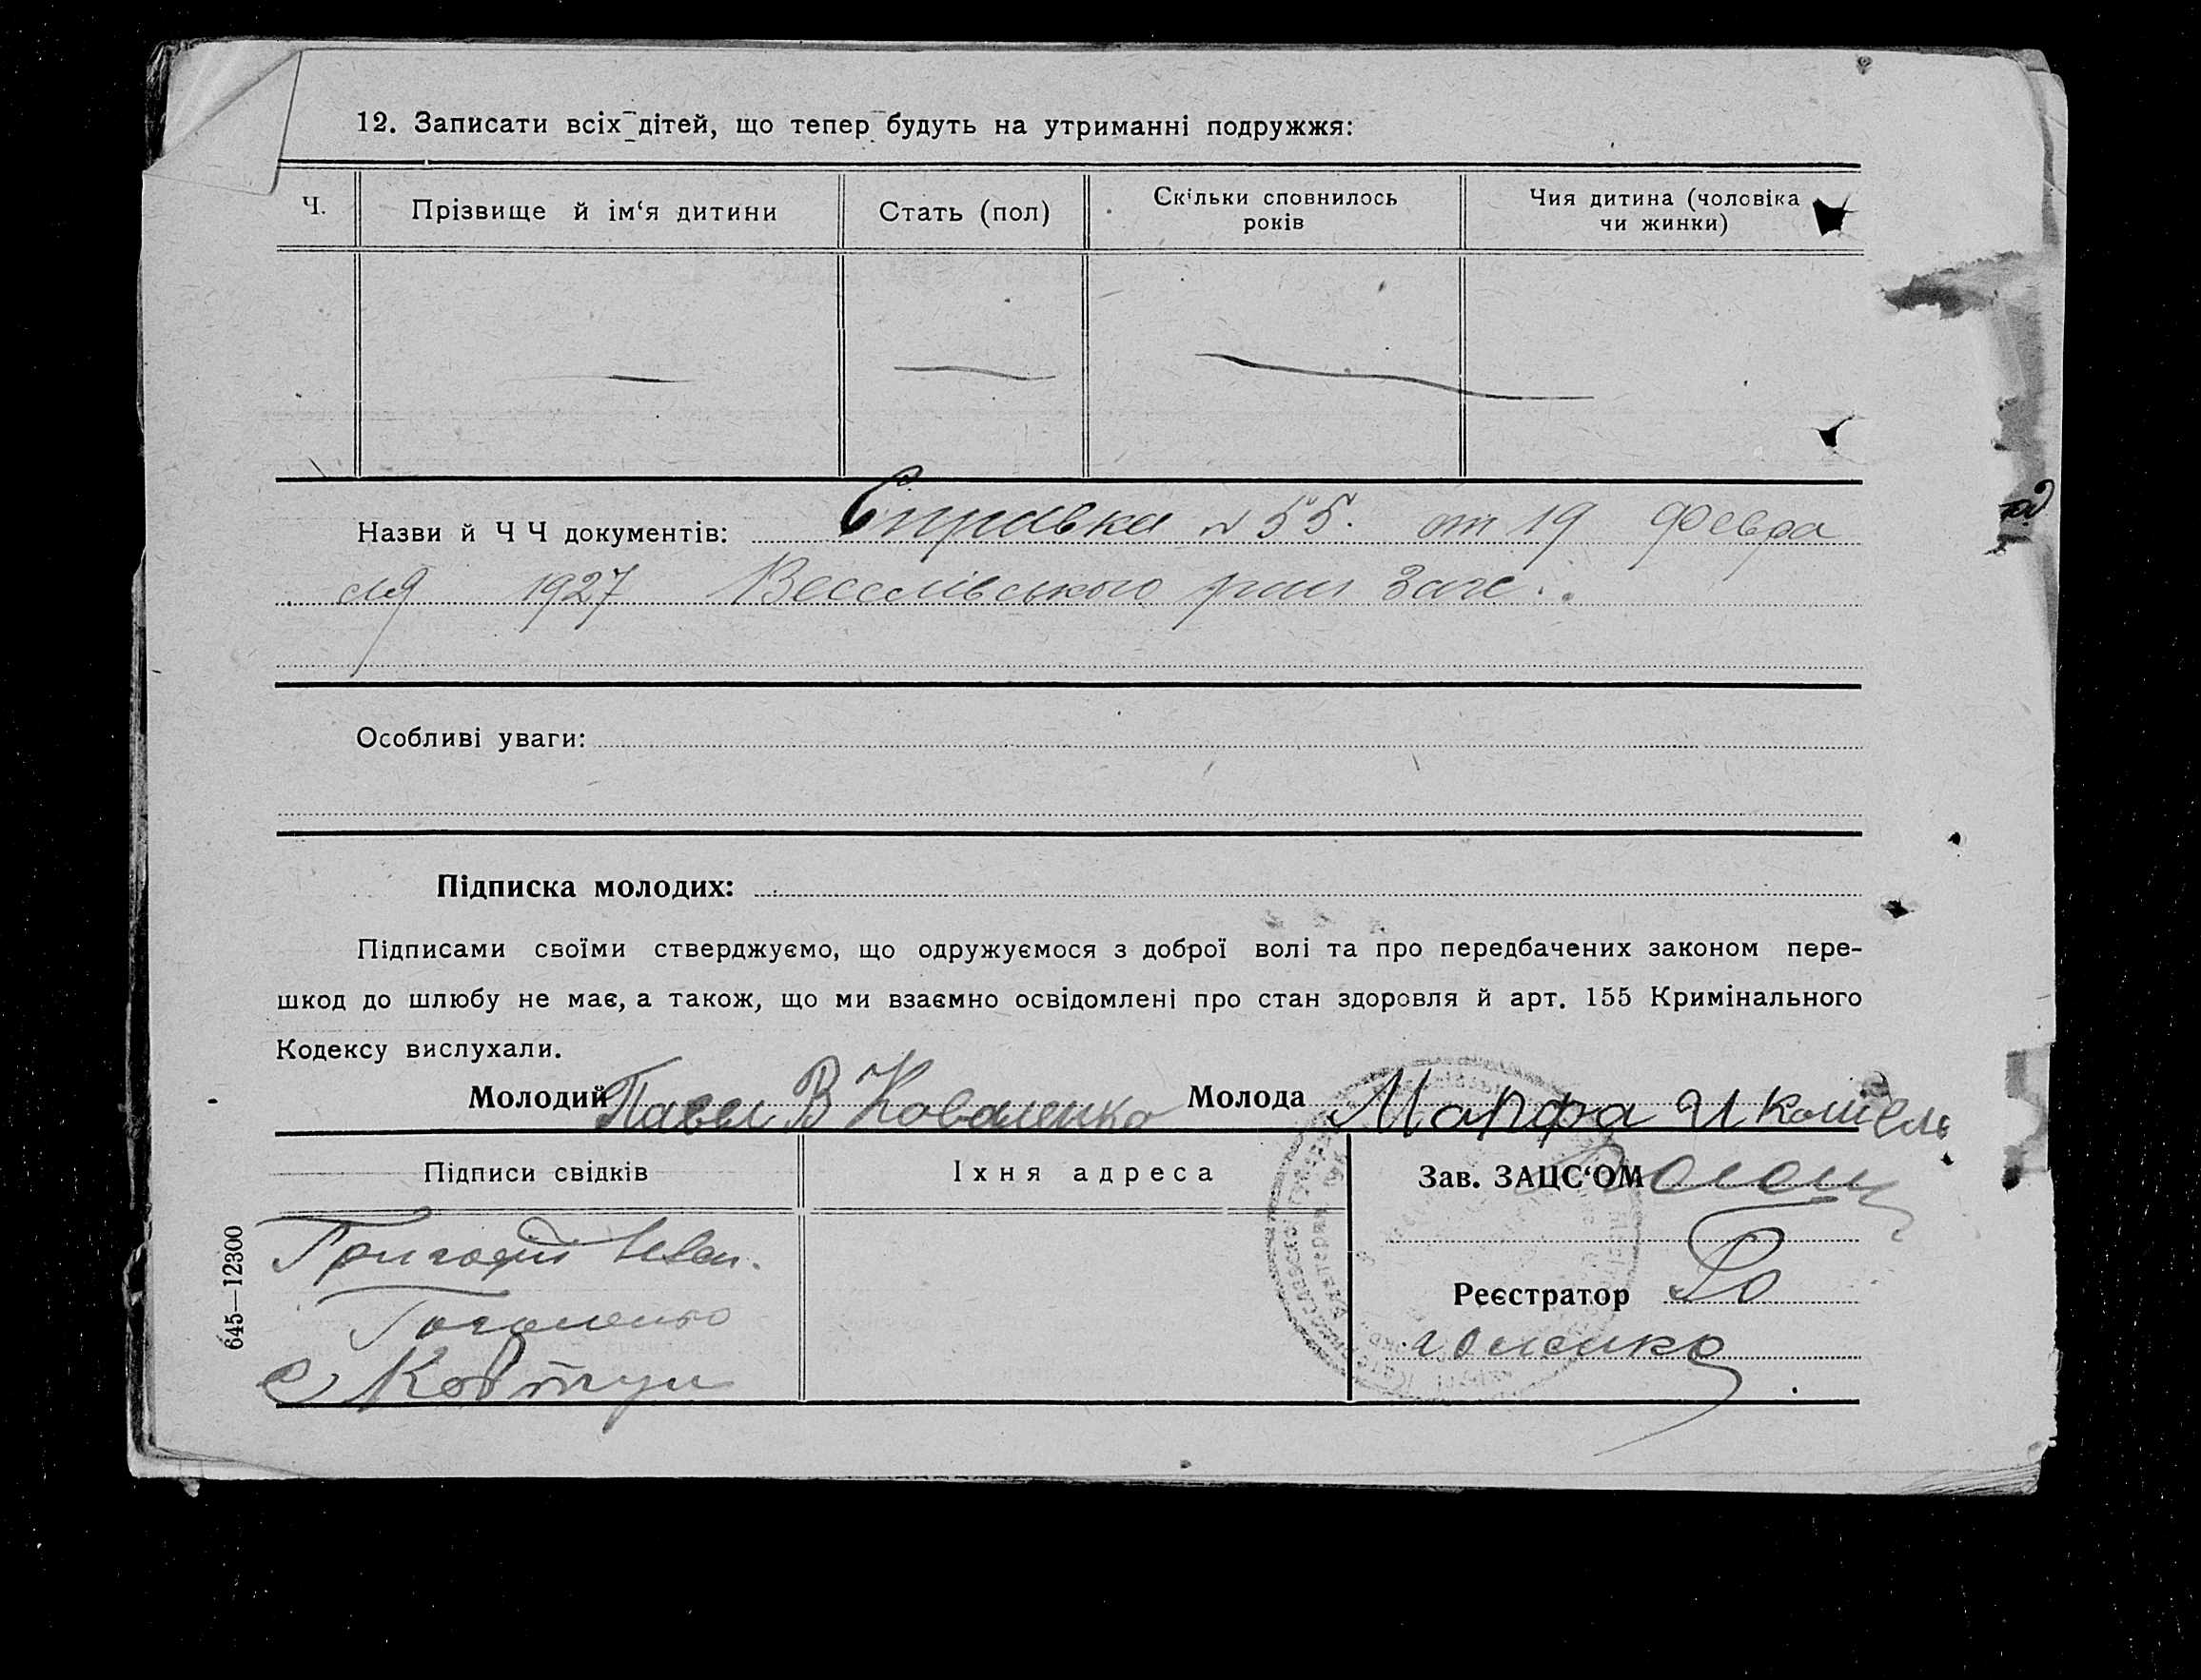 12. Записати всіх дітей, що тепер будуть на утриманні подружжя:
Ч.
Прізвище й ім‘я дитини
Стать (пол)
Скільки сповнилось
років
Чия дитина (чоловіка
чи жинки)
Назви й Ч Ч документів: Справка № 55. от 19 Февра
ля 1927 Веселівського
Особливі уваги:
Підписка молодих:
Підписами своїми стверджуємо, що одружуємося з доброї волі та про передбачених законом пере-
шкод до шлюбу не має, а також, що ми взаємно освідомлені про стан здоровля й арт. 155 Кримінального
Кодексу вислухали.
Молодий Павел В Коваленко
Молода Марфа И
Підписи свідків
Їхня адреса
Зав. ЗАЦС‘ОМ
Григорій Иван.
Реєстратор
Ковтун
645—12300